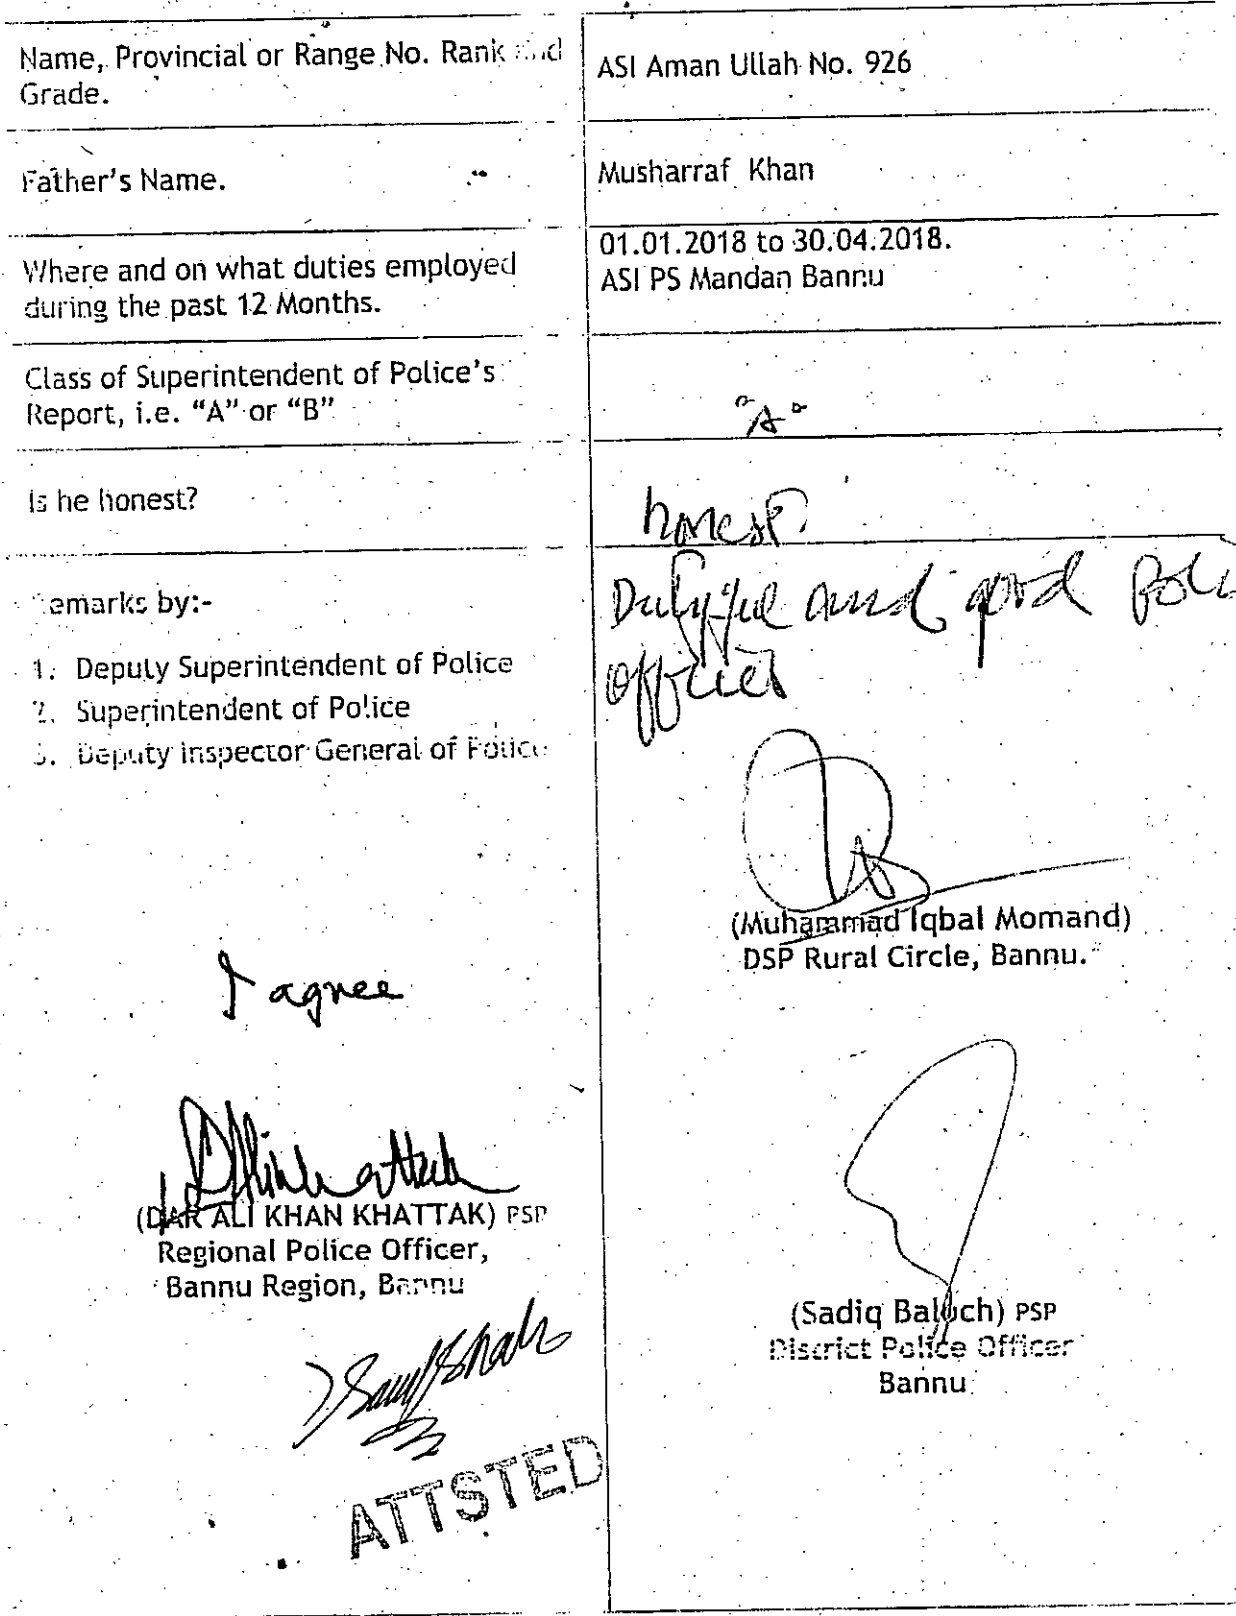 Name, Provincial or Range No. Rank and
Grade.
ASI Aman Ullah No. 926
Father's Name.
Musharraf Khan
Where and on what duties employed
during the past 12 Months.
01.01.2018 to 30.04.2018.
ASI PS Mandan Bannu
Class of Superintendent of Police's
Report, i.e. "A" or "B"
"A"
Is he honest?
honest.
emarks by:-
1. Deputy Superintendent of Police
2. Superintendent of Police
3. Deputy Inspector General of Police
Dutyful and good Poli
officer
(Muhammad Iqbal Momand)
DSP Rural Circle, Bannu.
I agree
(DAR ALI KHAN KHATTAK) PSP
Regional Police Officer,
Bannu Region, Bannu
(Sadiq Baloch) PSP
District Police Officer
Bannu
ATTSTED